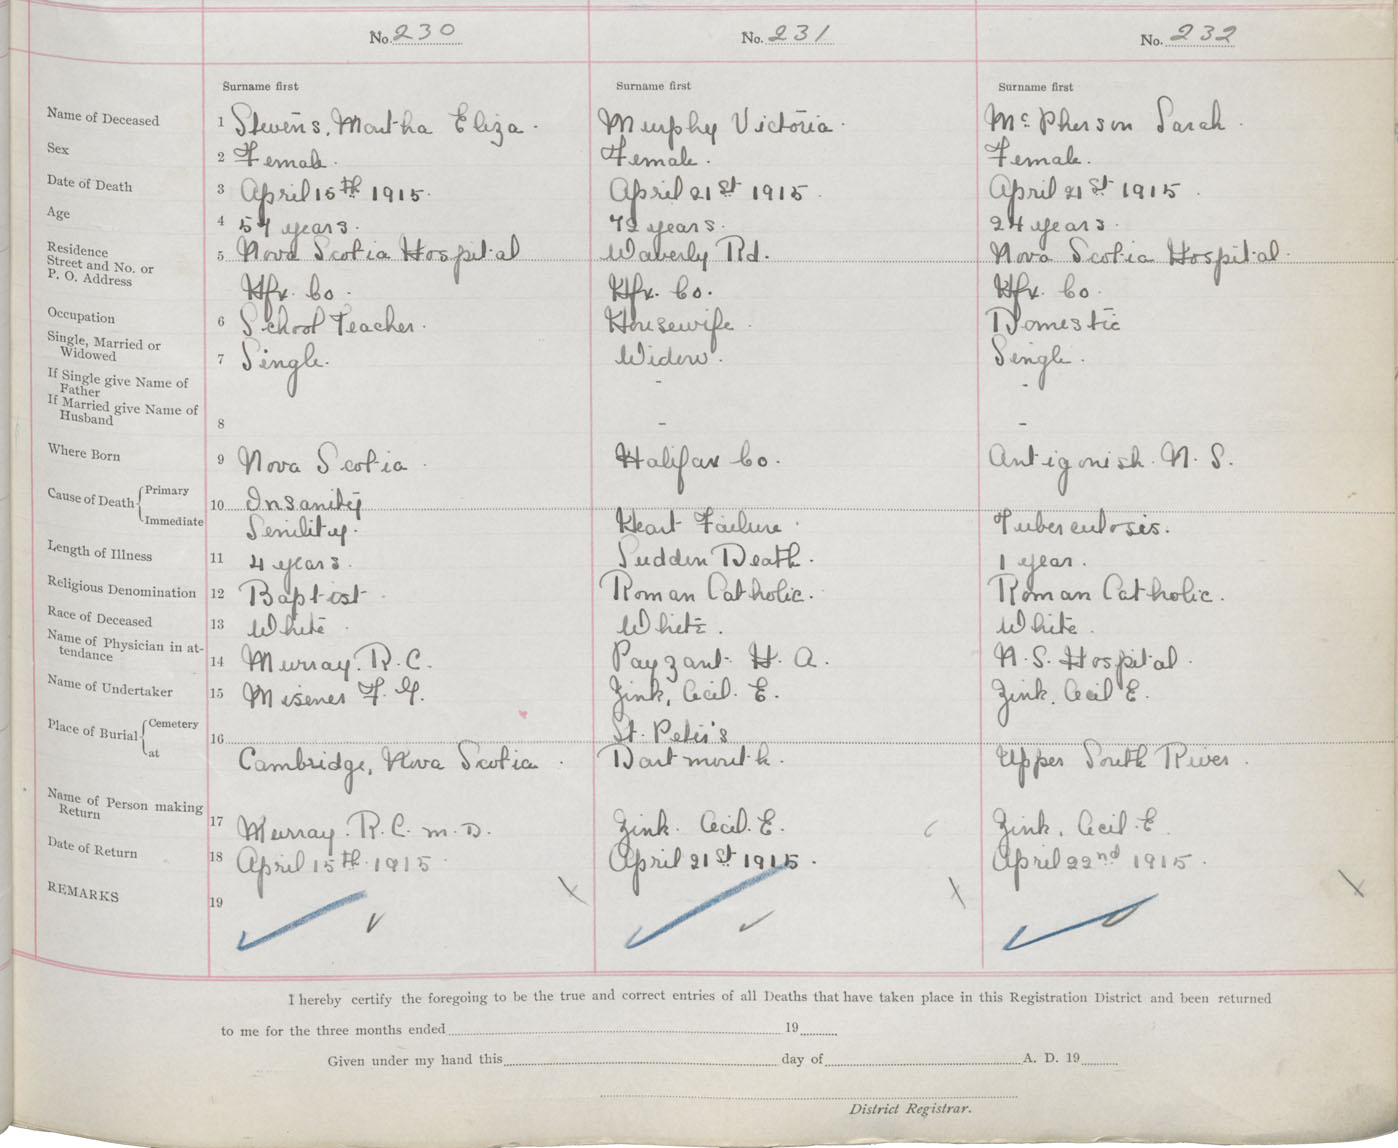 No. 230 No. 231 No. 232
Surname first Surname first Surname first
Name of Deceased 1 Stevens, Martha Eliza. Murphy Victoria. McPherson Sarah.
Sex 2 Female. Female. Female.
Date of Death 3 April 15th 1915. April 21st 1915 April 21st 1915.
Age 4 57 years. 72 years. 24 years.
Residence
Street and No. or 5 Nova Scotia Hospital Waverly Rd. Nova Scotia Hospital.
P. O. Address Hfx. Co. Hfx. Co. Hfx. Co.
Occupation 6 School Teacher. Housewife. Domestic
Single, Married or
Widowed 7 Single. Widow. Single.
If Single give Name of - -
Father
If Married give Name of
Husband 8 - -
Where Born 9 Nova Scotia. Halifax Co. Antigonish. N. S.
Cause of Death { Primary 10 Insanity
Immediate Senility. Heart Failure. Tuberculosis.
Length of Illness 11 4 years. Sudden Death. 1 year.
Religious Denomination 12 Baptist. Roman Catholic. Roman Catholic.
Race of Deceased 13 White. White. White.
Name of Physician in at-
tendance 14 Murray. R. C. Payzant. H. A. N. S. Hospital.
Name of Undertaker 15 Misener F. G. Zink, Cecil. E. Zink, Cecil E.
Place of Burial { Cemetery 16 St. Peter's
at Cambridge, Nova Scotia. Dartmouth. Upper South River.
Name of Person making
Return 17 Murray. R. C. M. D. Zink. Cecil. E. Zink, Cecil. E
Date of Return 18 April 15th 1915. April 21st 1915. April 22nd 1915.
REMARKS 19
I hereby certify the foregoing to be the true and correct entries of all Deaths that have taken place in this Registration District and been returned
to me for the three months ended 19
Given under my hand this day of A. D. 19
District Registrar.